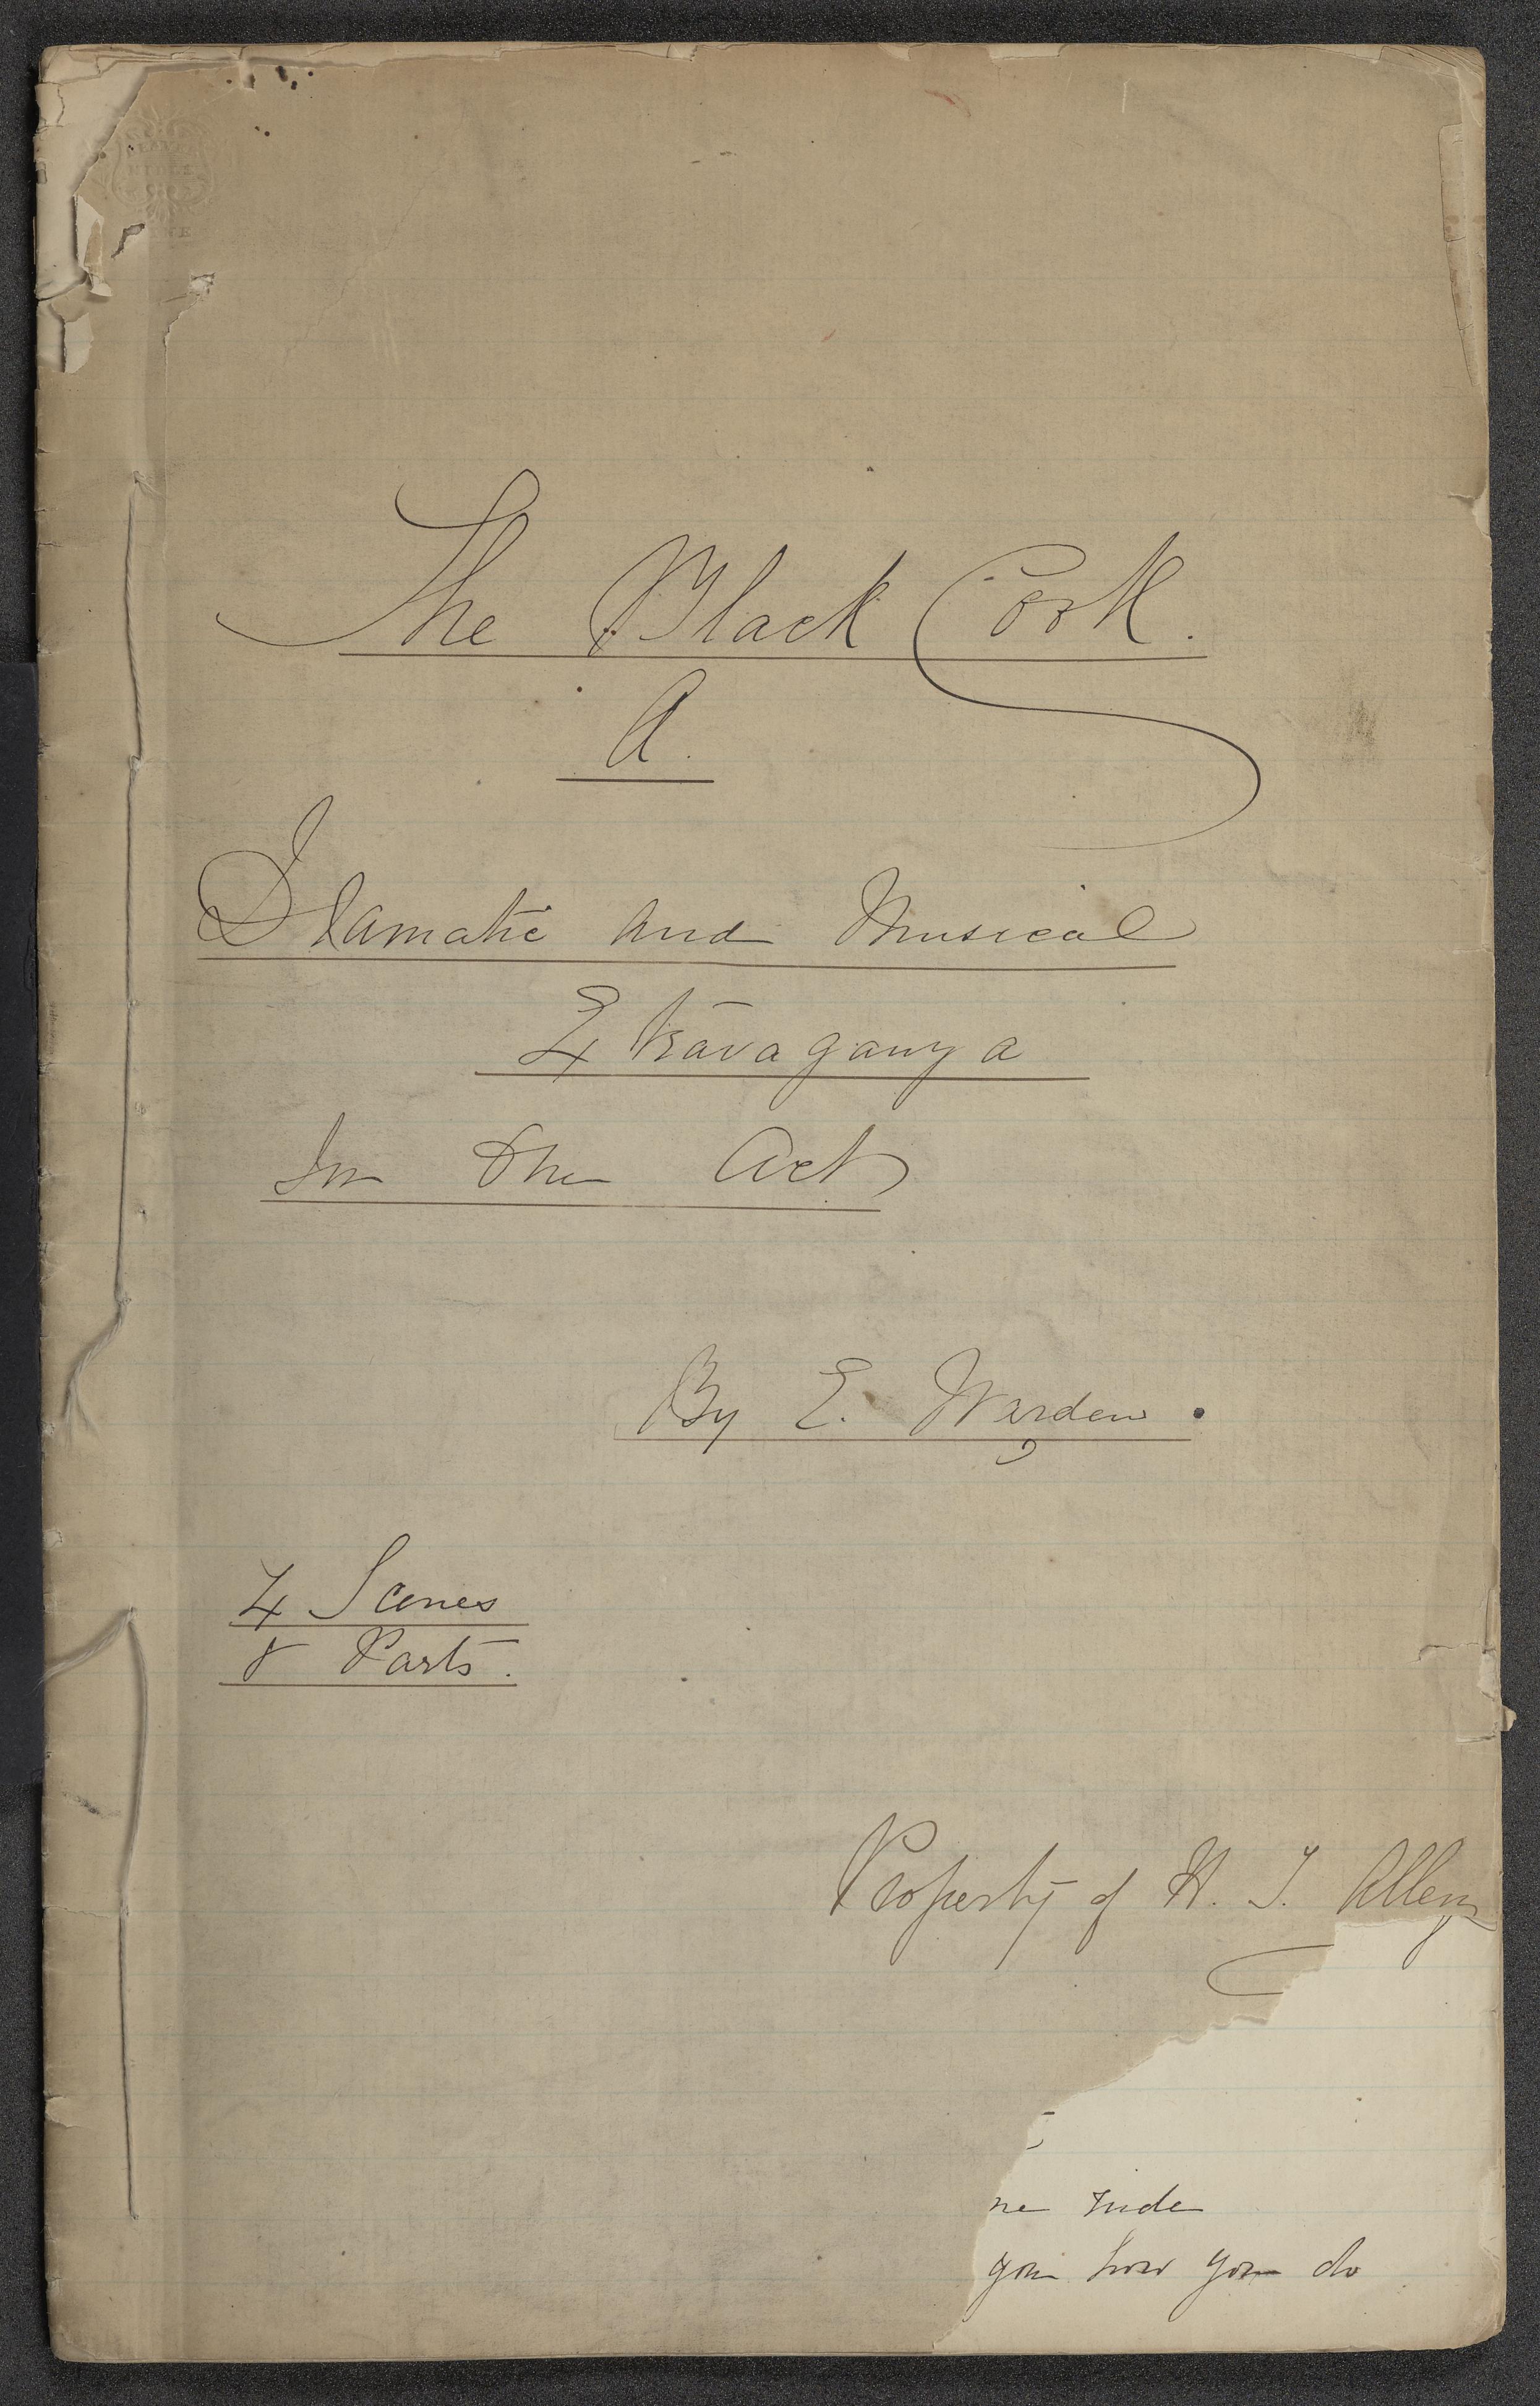 The Black Cook.
A.
Dramatic and Musical
Extravaganza
In One Act
By E. Warden.
4 Scenes
8 Parts.
Property of H. J. Allen
ne rude
you how you do